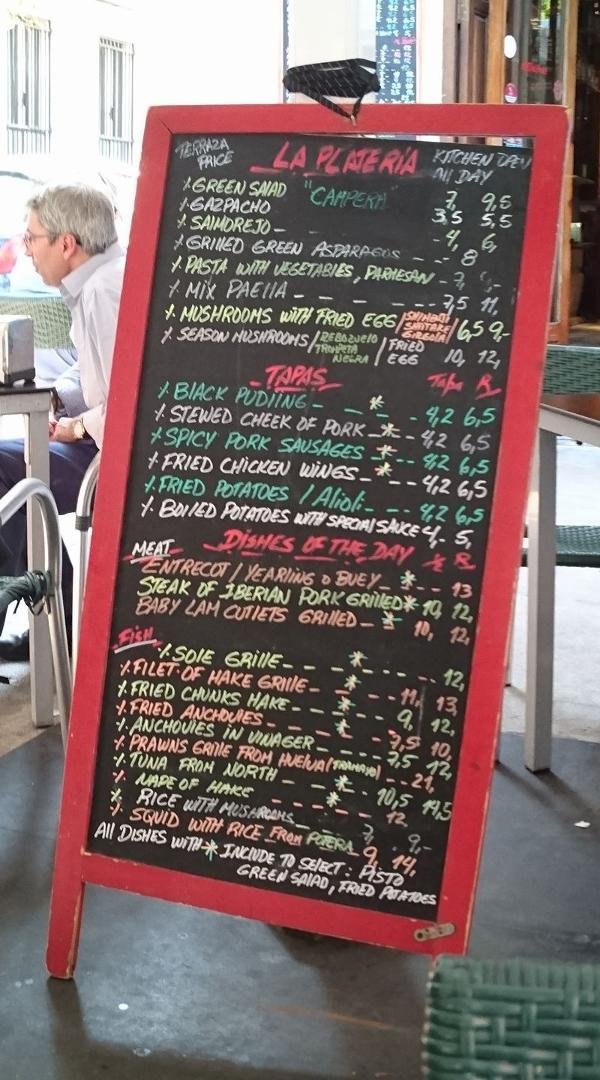 TERRAZA PRICE LA PLATERIA KITCHEN OPEN All DAY
GREEN SALAD "CAMPERA" 7, 9,5
GAZPACHO 3,5 5,5
SALMOREJO 4, 6,
GRILLED GREEN ASPARAGUS 8
PASTA WITH VEGETABLES, PARMESAN 7,
MIX PAELLA 7,5 11,
MUSHROOMS WITH FRIED EGG / SHIMEJI SHIITAKE GIRGOLA / 6,5 9-
SEASON MUSHROOMS / REBOZUELO TROMPETA NEGRA / FRIED EGG 10, 12,
TAPAS Tapa R
BLACK PUDIING 4,2 6,5
STEWED CHEEK OF PORK * 4,2 6,5
SPICY PORK SAUSAGES * 4,2 6,5
FRIED CHICKEN WINGS * 4,2 6,5
FRIED POTATOES / Alioli 4,2 6,5
BOILED POTATOES WITH SPECIAL SAUCE 4,- 5,
MEAT DISHES OF THE DAY ½ R
ENTRECOT / YEARLING o BUEY * 13
STEAK OF IBERIAN PORK GRILLED * 10, 12,
BABY LAM CUTLETS GRILLED * 10, 12,
FISH
½ SOLE GRILLE * 12,
FILET OF HAKE GRILLE * 11, 13,
FRIED CHUNKS HAKE * 9, 12,
FRIED ANCHOVIES * 7,5 10
ANCHOVIES IN VINAGER 7,5 12,
PRAWNS GRILLE FROM HUELVA 21,
TUNA FROM NORTH * 10,5 19,5
NAPE OF HAKE * 12
RICE WITH MUSHROOMS 7, 9,-
SQUID WITH RICE FROM POTERA 9, 14,
All DISHES WITH * INCLUDE TO SELECT: PISTO
GREEN SALAD, FRIED POTATOES